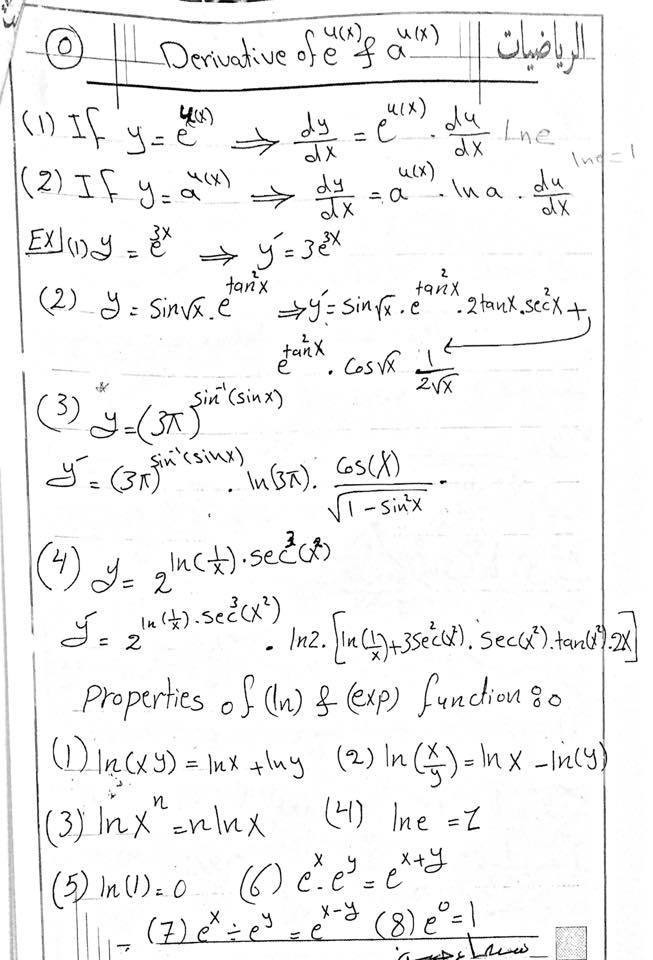 0 Derivative of e^u(x) & a^u(x) الرياضيات
(1) If y = e^u(x) ⇒ dy/dx = e^u(x) · du/dx lne
lne = 1
(2) If y = a^u(x) ⇒ dy/dx = a^u(x) · ln a · du/dx
Ex (1) y = e^3x ⇒ y' = 3e^3x
(2) y = sin√x · e^tan²x ⇒ y' = sin√x · e^tan²x · 2tanx · sec²x +
e^tan²x · cos√x 1/2√x
(3) y = (3π)^sin⁻¹(sinx)
y' = (3π)^sin⁻¹(sinx) · ln(3π) · cos(x)/√(1 - sin²x) ·
(4) y = 2^ln(1/x) · sec³(x²)
y' = 2^ln(1/x) · sec³(x²) · ln2 · [ln(1/x) + 3sec²(x²) · sec(x²) · tan(x²) · 2x]
Properties of (ln) & (exp) function :
(1) ln(xy) = lnx + lny (2) ln(x/y) = ln x - ln(y)
(3) ln x^n = n ln x (4) ln e = 1
(5) ln(1) = 0 (6) e^x · e^y = e^x+y
(7) e^x ÷ e^y = e^x-y (8) e^0 = 1